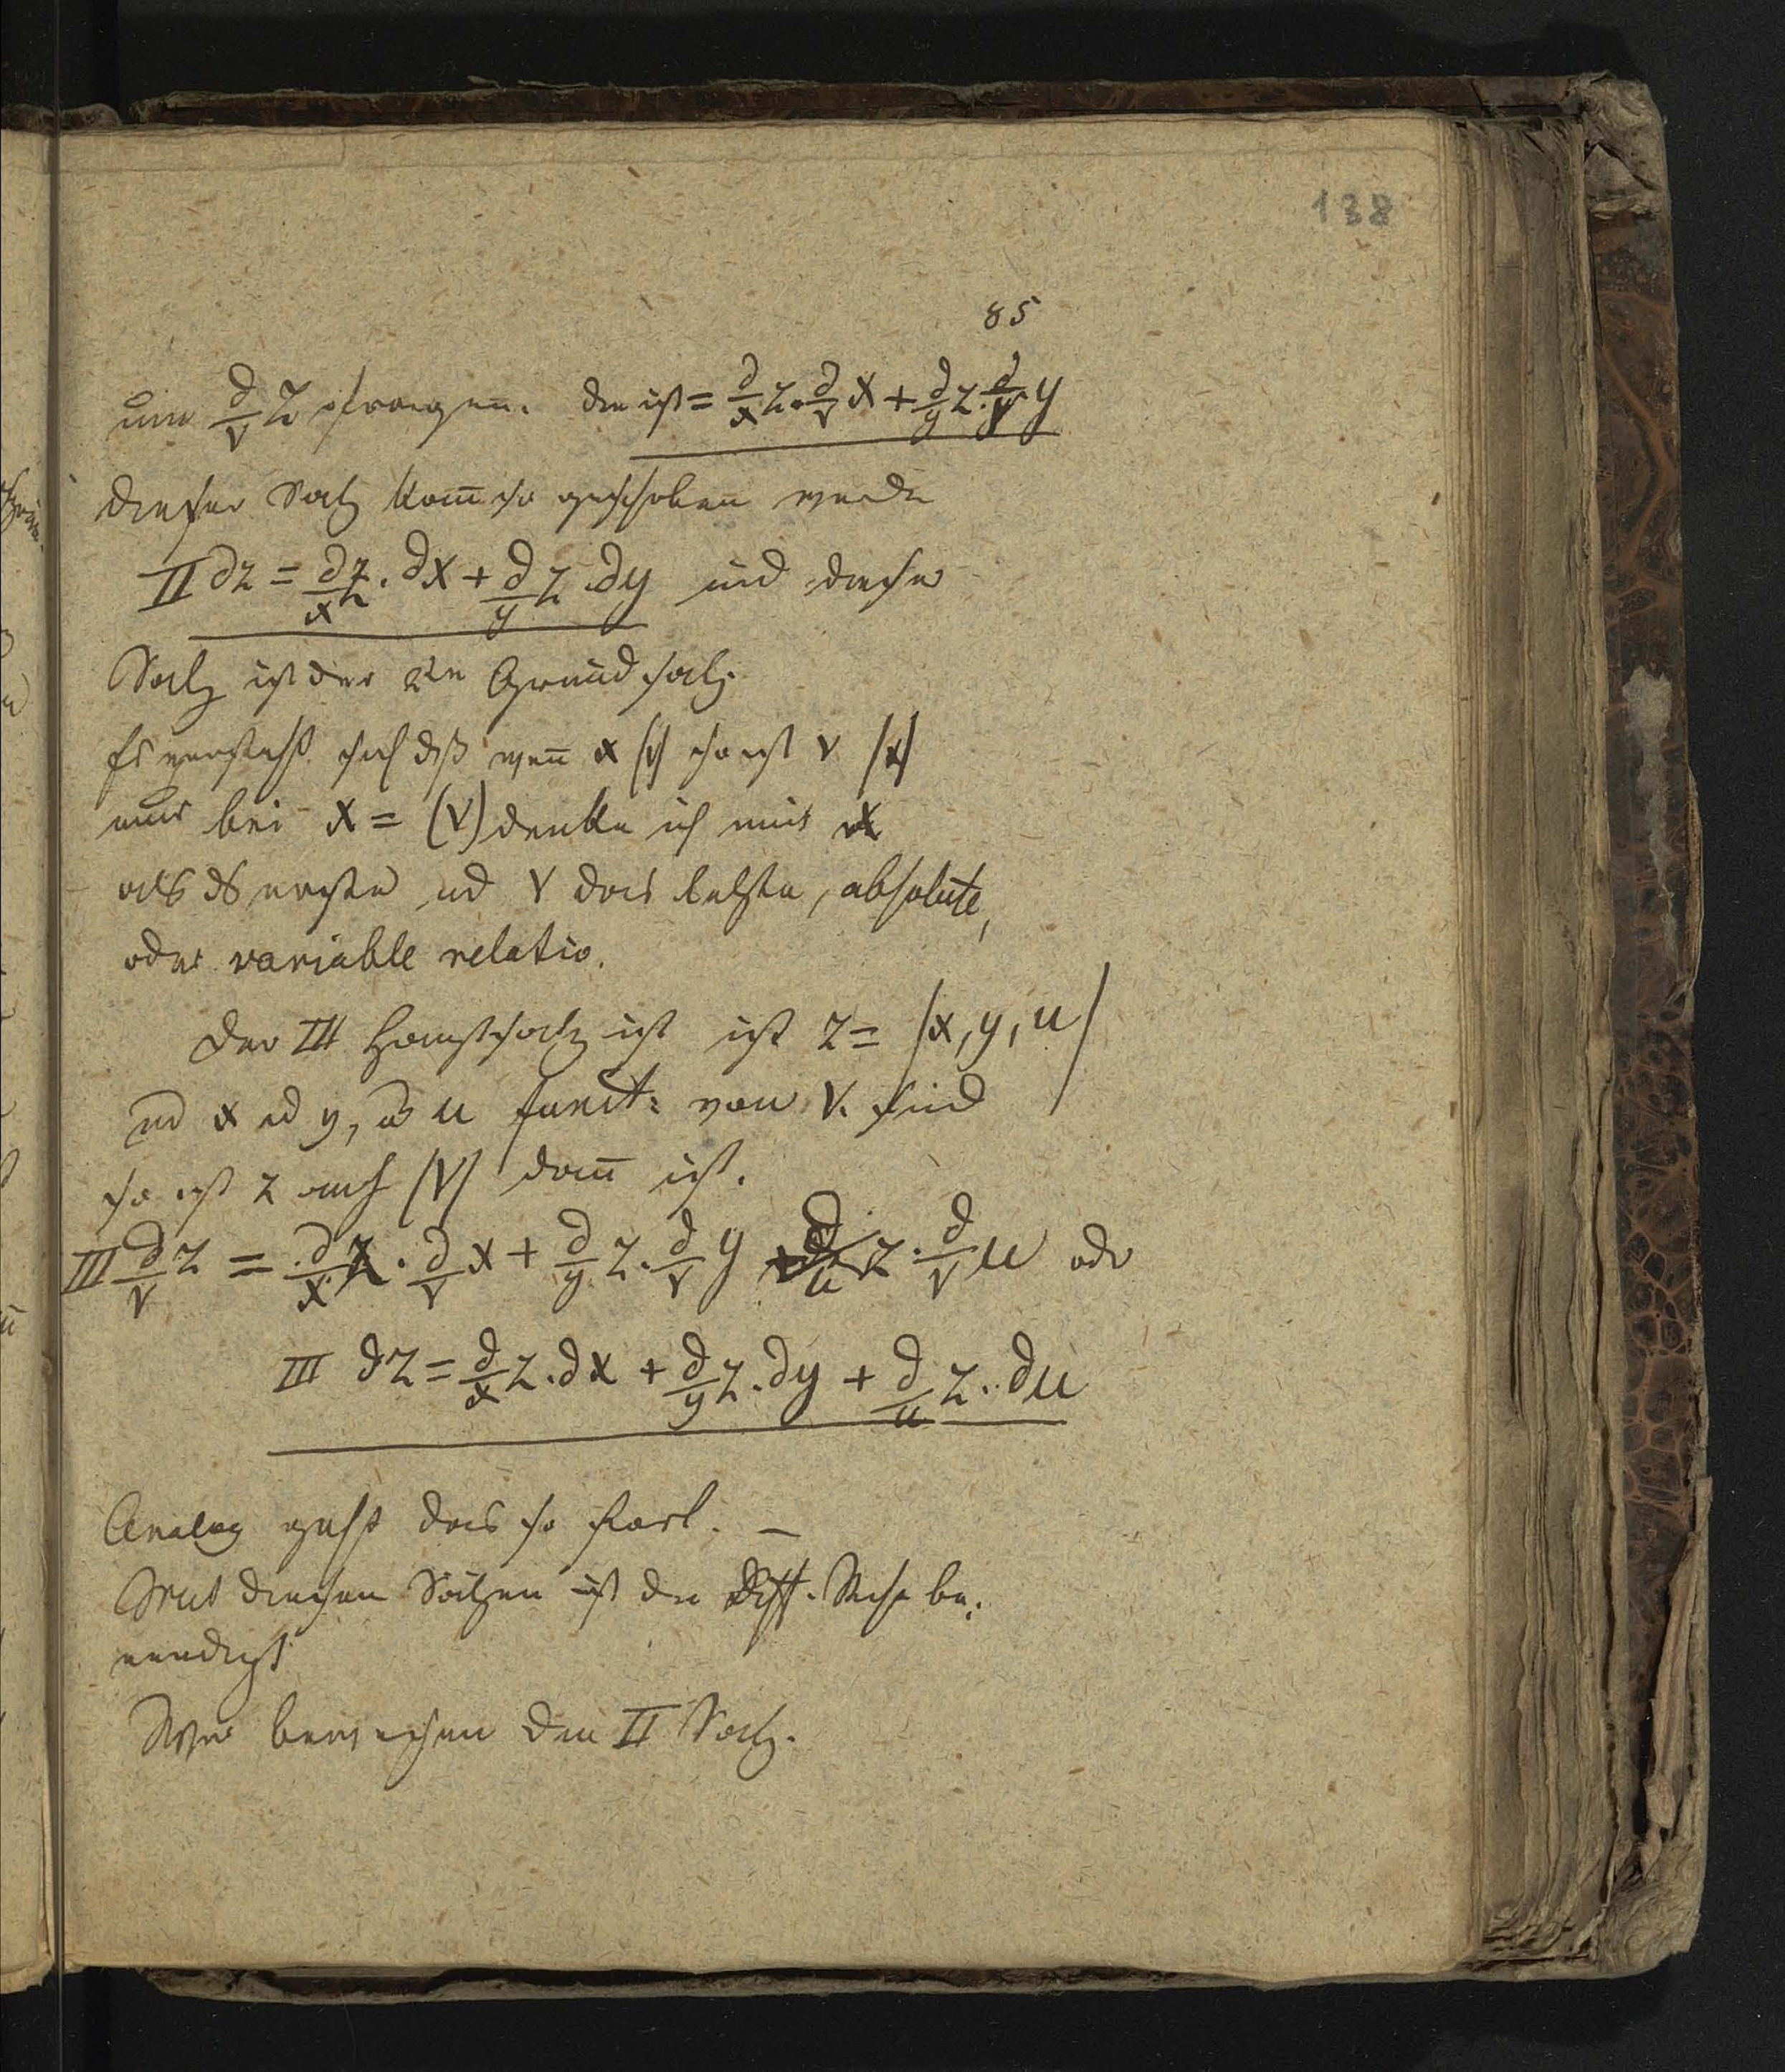 138
85
um d/v z fragen. die ist = d/x z · d/v x + d/y z · d/v y
dieser Satz kann so geschoben werde
II dz = d/x z . dx + d/y z . dy und dieser
Satz ist der 2te Grundsatz.
Es versteht sich dß wenn x (v) so ist v (x)
nur bei x = (v) denke ich mir x
als ds erste und v das letzte, absolute,
oder variable relatio.
Der III Hauptsatz ist ist z = (x, y, u)
und x und y, u funct: von v. sind
so ist z auch (v) dann ist.
III d/v z = d/x z . d/v x + d/y z . d/v y + d/u z . d/v u oder
III dz = d/x z . dx + d/y z . dy + d/u z . du
Analog geht das so fort. —
Mit diesen Sätzen ist die Diff. be:
endigt
Wir beweisen den II Satz.